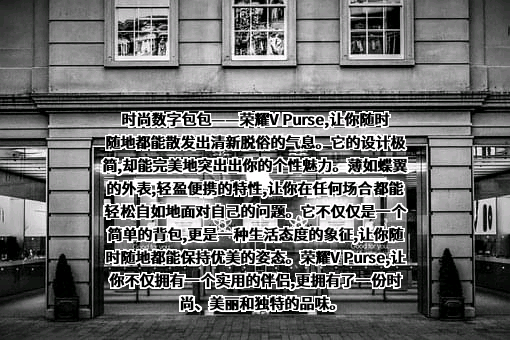 时尚数字包包——荣耀V Purse,让你随时
随地都能散发出清新脱俗的气息。它的设计极
简,却能完美地突出出你的个性魅力。薄如蝶翼
的外表,轻盈便携的特性,让你在任何场合都能
轻松自如地面对自己的问题。它不仅仅是一个
简单的背包,更是一种生活态度的象征,让你随
时随地都能保持优美的姿态。荣耀V Purse,让
你不仅拥有一个实用的伴侣,更拥有了一份时
尚、美丽和独特的品味。